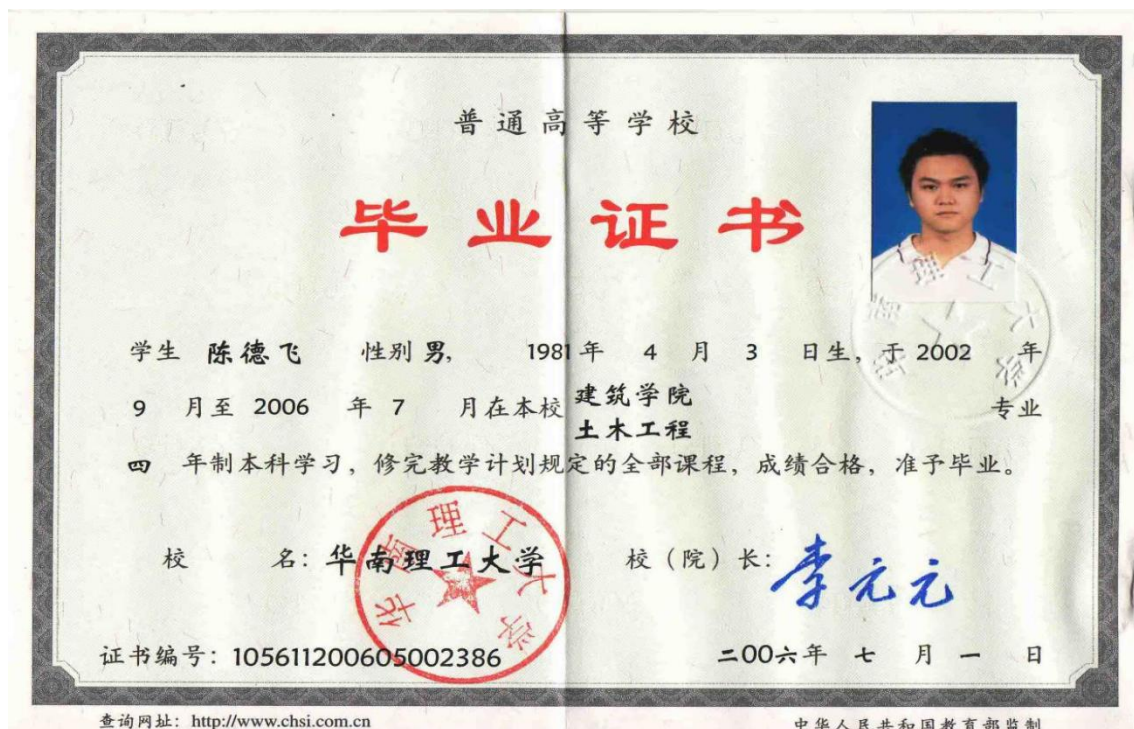 普通高等学校
毕业证书
学生 陈德飞 性别 男, 1981 年 4 月 3 日生，于 2002 年
9 月至 2006 年 7 月在本校 建筑学院 土木工程 专业
四 年制本科学习，修完教学计划规定的全部课程，成绩合格，准予毕业。
校 名：华南理工大学 校（院）长：李元元
华南理工大学
华南理工大学
证书编号：105611200605002386 二00六年 七 月 一 日
查询网址：http://www.chsi.com.cn 中华人民共和国教育部监制